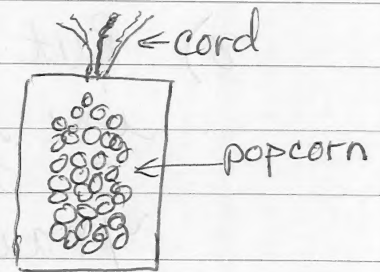 cord
popcorn